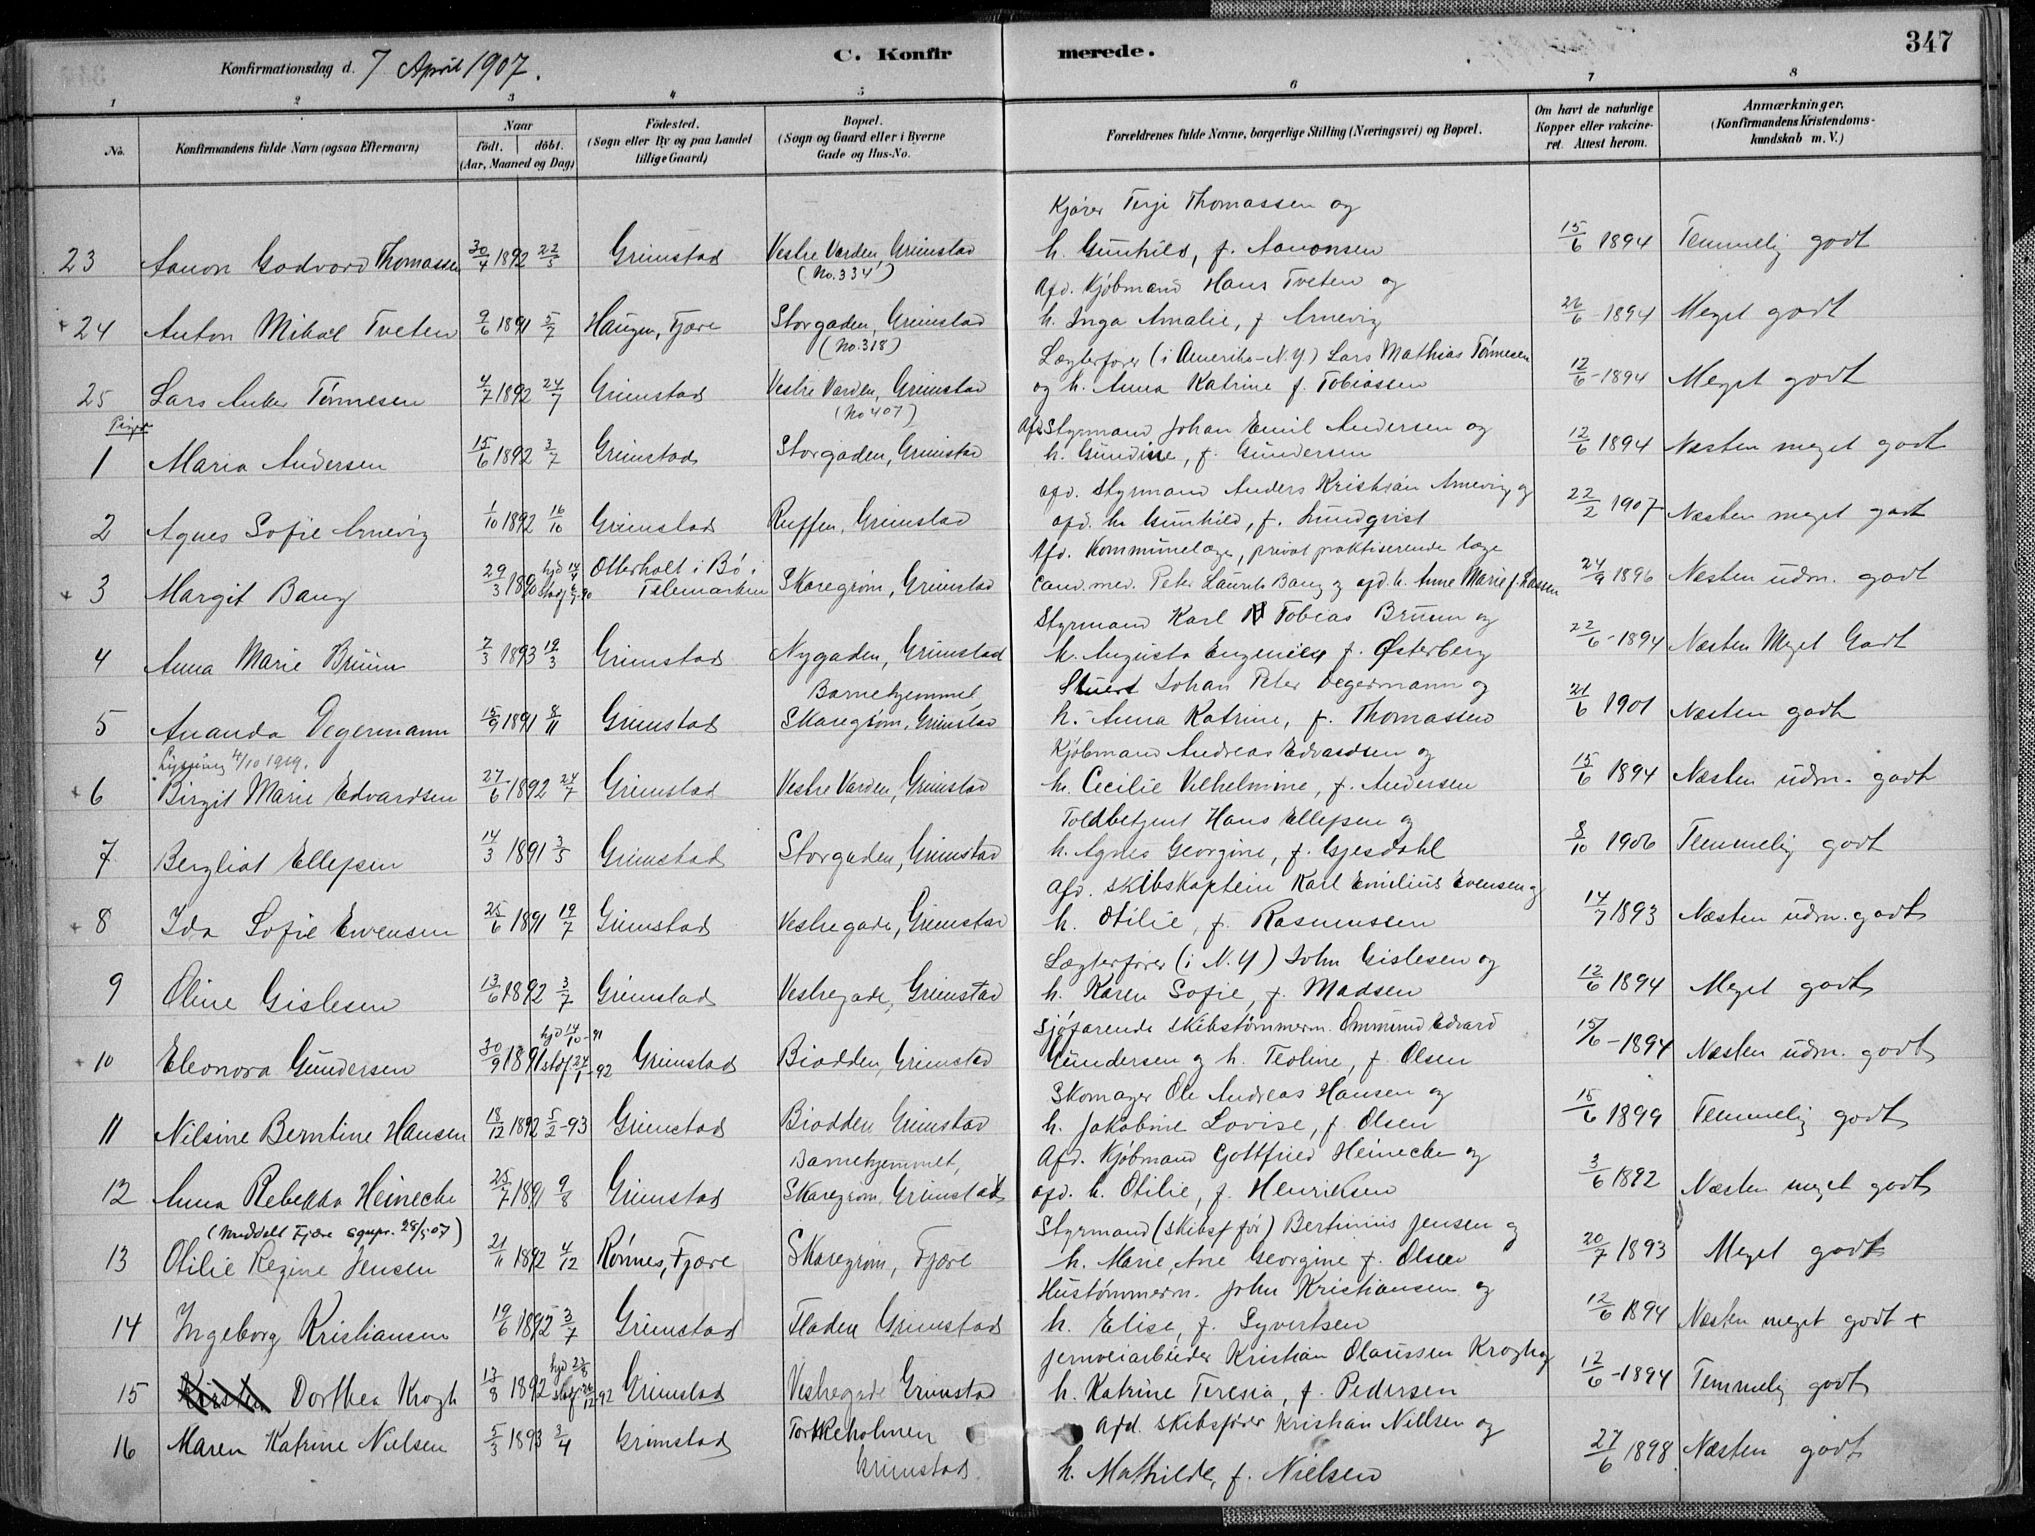 Konfirmationsdag d. 7 April 1907.
C. Konfirmerede.
347
1 2 3 4 5 6 7 8
No.
Konfirmandens fulde Navn (ogsaa Efternavn)
Naar
födt. döbt.
(Aar, Maaned og Dag)
Födested.
(Sogn eller By og paa Landet
tillige Gaard)
Bopæl.
(Sogn og Gaard eller i Byerne
Gade og Hus-No.
Forældrenes fulde Navne, borgerlige Stilling (Næringsvei) og Bopæl.
Om havt de naturlige
Kopper eller vakcine-
ret. Attest herom.
Anmærkninger.
(Konfirmandens Kristendoms-
kundskab m. V.)
Kjører Terje Thomassen og
23 Aanon Godvard Thomassen 30/4 1892 22/5 Grimstad Vestre Varden, Grimstad h. Gunhild, f. Aanonsen 15/6 1894 Temmelig godt
(No. 334)
Afd. Kjøbmand Hans Tveten og
24 Anton Mikal Tveten 9/6 1891 5/7 Haugen, Fjære Storgaden, Grimstad h. Inga Amalie, f Arnevig 26/6 - 1894 Meget godt
(No. 318)
Lægterfører (i Amerika - N.Y.) Lars Mathias Tønnesen
25 Lars Anker Tønnesen 4/7 1892 24/7 Grimstad Vestre Varden, Grimstad og h. Anna Katrine f. Tobiassen 12/6 - 1894 Meget godt
(No 407)
Piger
Afd. Styrmand Johan Emil Andersen og
1 Maria Andersen 15/6 1892 3/7 Grimstad Storgaden, Grimstad h. Gundine, f. Gundersen 12/6 1894 Næsten meget godt
afd. Styrmand Anders Kristian Arnevig og
2 Agnes Sofie Arnevig 1/10 1892 16/10 Grimstad Ruffen, Grimstad afd. h. Gunhild, f. Lundqvist 22/2 1907 Næsten meget godt
Afd. Kommunelæge, privat praktiserende læge
3 Margit Bang 29/3 1890 hjd 14/4 stadf 6/7-90 Otterholt i Bø i Telemarken Skaregrøm, Grimstad cand. med. Peter Laurits Bang og afd. h. Anne Marie f. Lassen 24/9 1896 Næsten udm. godt
Styrmand Karl Tobias Bruun og
4 Anna Marie Bruun 7/3 1893 19/3 Grimstad Nygaden, Grimstad h. Augusta Eugenie f. Østerberg 22/6 - 1894 Næsten Meget Godt
Barnehjemmet
Stuert Johan Peter Degermann og
5 Ananda Degermann 15/9 1891 8/11 Grimstad Skaregrøm, Grimstad h. Anna Katrine, f. Thomassen 21/6 1901 Næsten godt
Lysning 4/10 1919.
Kjøbmand Andreas Edvardsen og
6 Birgit Marie Edvardsen 27/6 1892 24/7 Grimstad Vestre Varden, Grimstad h. Cecilie Vilhelmine, f. Andersen 15/6 1894 Næsten udm. godt
Toldbetjent Hans Ellefsen og
7 Bergliot Ellefsen 14/3 1891 3/5 Grimstad Storgaden, Grimstad h. Agnes Georgine, f. Gjesdahl 8/10 1906 Temmelig godt
Afd. skibskaptein Karl Emilius Evensen og
8 Ida Sofie Evensen 25/6 1891 19/7 Grimstad Vestregade, Grimstad h. Otilie, f. Rasmussen 14/7 1893 Næsten udm. godt
Lægterfører (i N.Y) John Gislesen og
9 Oline Gislesen 13/6 1892 3/7 Grimstad Vestregade, Grimstad h. Karen Sofie, f. Madsen 12/6 1894 Meget godt
Sjøfarende skibstømmerm. Ommund Edvard
10 Eleonora Gundersen 30/9 1891 hjd 14/10-91 stadf 24/1-92 Grimstad Biodden, Grimstad Gundersen og h. Teoline, f. Olsen 15/6 - 1894 Næsten udm. godt
Skomager Ole Andreas Hansen og
11 Nilsine Berntine Hansen 18/12 1892 5/2-93 Grimstad Biodden Grimstad h. Jakobine Lovise, f. Olsen 15/6 1899 Temmelig godt
Barnehjemmet,
Afd. Kjøbmand Gottfried Heinecke og
12 Anna Rebekka Heinecke 25/7 1891 9/8 Grimstad Skaregrøm, Grimstad afd. h. Otilie, f. Henriksen 3/6 1892 Næsten meget godt
(Meddelt Fjære sognpr. 28/5 07)
Styrmand (skibsfør) Bertinius Jensen og
13 Otilie Regine Jensen 21/11 1892 4/12 Rønnes, Fjære Skaregrøm, Fjære h. Marie Ane Georgine f. Olsen 20/7 1893 Meget godt
Hustømmerm. John Kristiansen og
14 Ingeborg Kristiansen 19/6 1892 3/7 Grimstad Fladen Grimstad h. Elise, f. Syvertsen 12/6 1894 Næsten meget godt +
Jernveiarbeider Kristian Olaussen Krogh og
15 Kirsten Dorthea Krogh 13/8 1892 hjd 23/8 stadf 26/12-92 Grimstad Vestregade Grimstad h. Katrine Teresia, f. Pedersen 12/6 - 1894 Temmelig godt
Afd. skibsfører Kristian Nielsen og
16 Maren Katrine Nielsen 5/3 1893 3/4 Grimstad Torskeholmen Grimstad. h. Mathilde, f. Nielsen 27/6 1898 Næsten godt